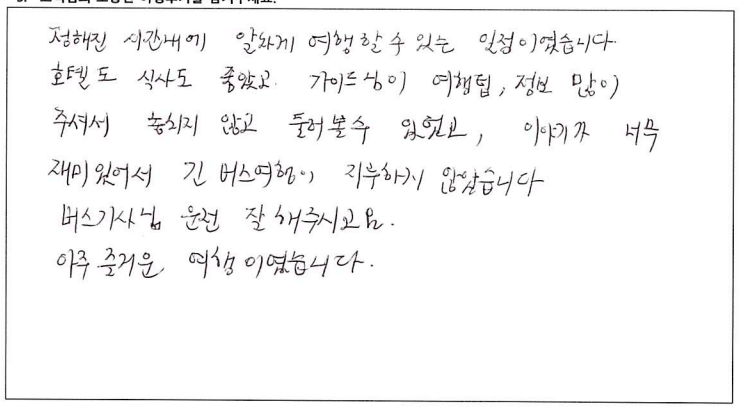 정해진 시간내에 알차게 여행할 수 있는 일정이였습니다.
호텔도 식사도 좋았고. 가이드님이 여행팁, 정보 많이
주셔서 놓치지 않고 둘러볼 수 있었고, 이야기가 너무
재미있어서 긴 버스여행이 지루하지 않았습니다
버스기사님 운전 잘 해주시고요.
아주 즐거운 여행이였습니다.